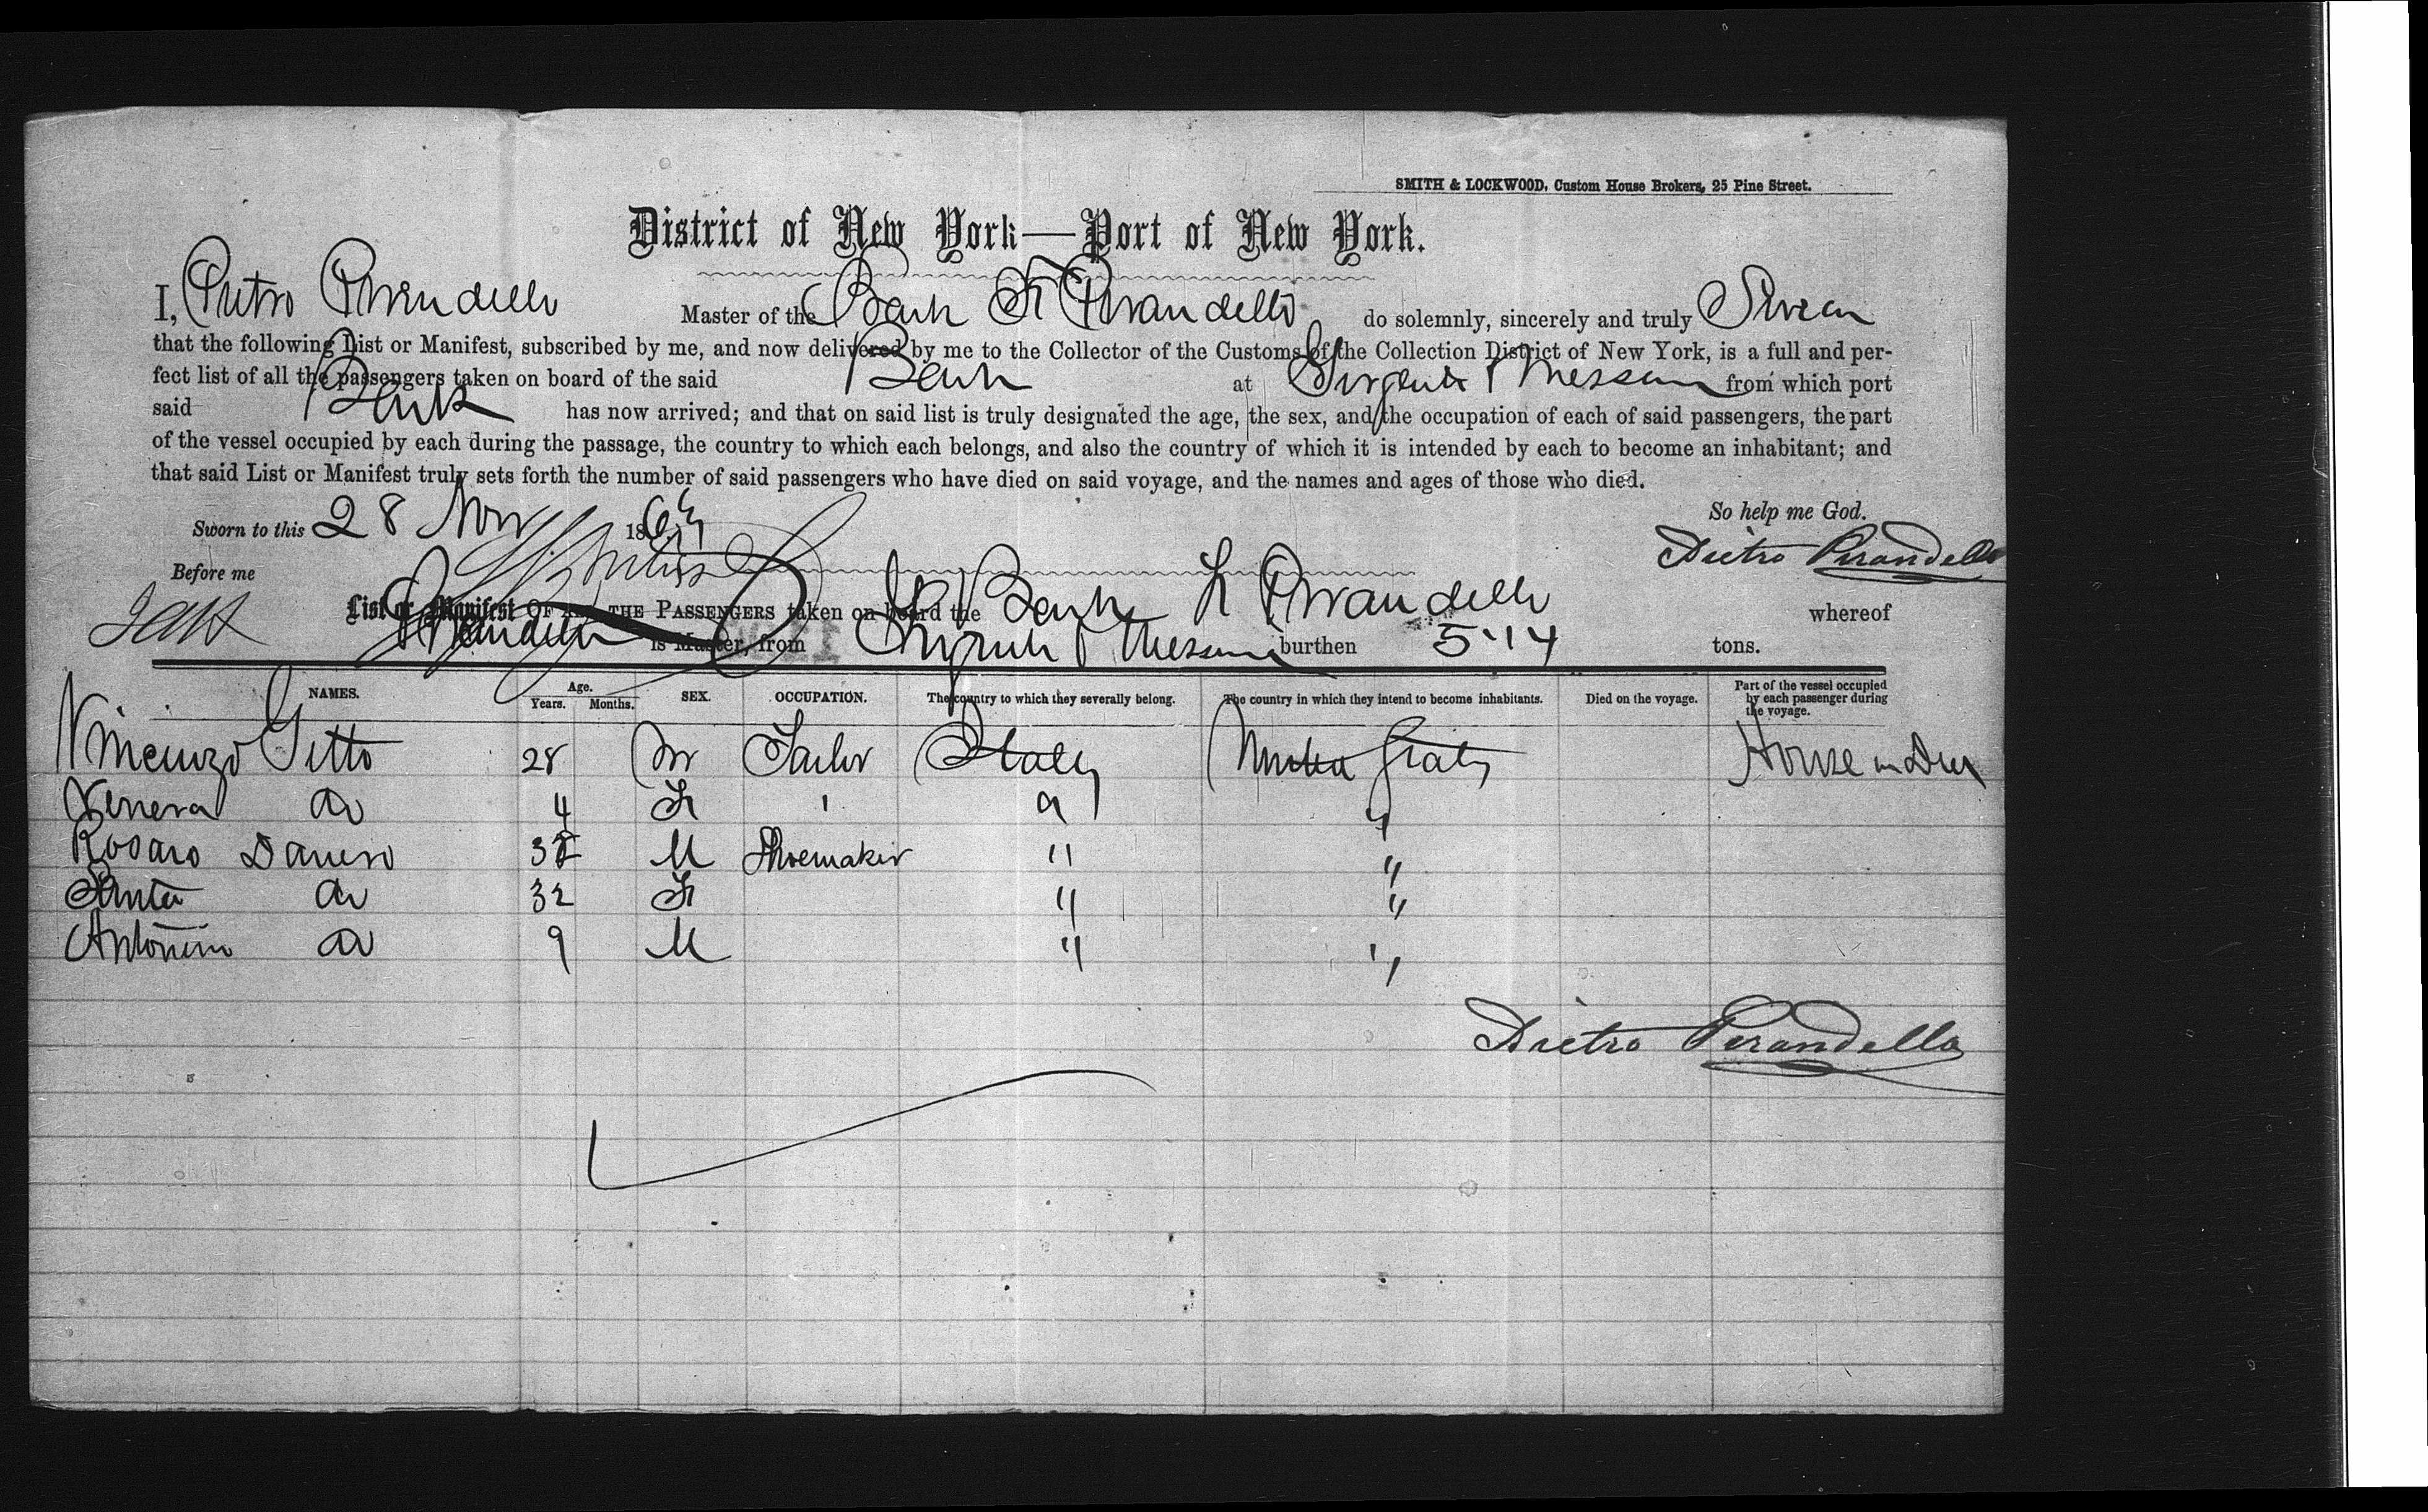 SMITH & LOCKWOOD, Custom House Brokers, 25 Pine Street.
District of New York—Port of New York.
I, Pietro Pirandello Master of the Bark F Pirandello do solemnly, sincerely and truly Swear
that the following List or Manifest, subscribed by me, and now delivered by me to the Collector of the Customs of the Collection District of New York, is a full and per-
fect list of all the passengers taken on board of the said Bark at Messina from which port
said Bark has now arrived; and that on said list is truly designated the age, the sex, and the occupation of each of said passengers, the part
of the vessel occupied by each during the passage, the country to which each belongs, and also the country of which it is intended by each to become an inhabitant; and
that said List or Manifest truly sets forth the number of said passengers who have died on said voyage, and the names and ages of those who died.
So help me God.
Sworn to this 28 Nov 186
Pietro Pirandello
Before me
List or Manifest OF ALL THE PASSENGERS taken on board the Bark F Pirandello whereof
Pirandello is Master, from Messina burthen 514 tons.
NAMES. Age. Years. Months. SEX. OCCUPATION. The country to which they severally belong. The country in which they intend to become inhabitants. Died on the voyage. Part of the vessel occupied by each passenger during the voyage.
Vincenzo Gitto 28 M Tailor Italy House on Deck
Venera do 4 F " "
Rosaro 32 M Shoemaker " "
Santa do 32 F " "
Antonino do 9 M " "
Pietro Pirandello